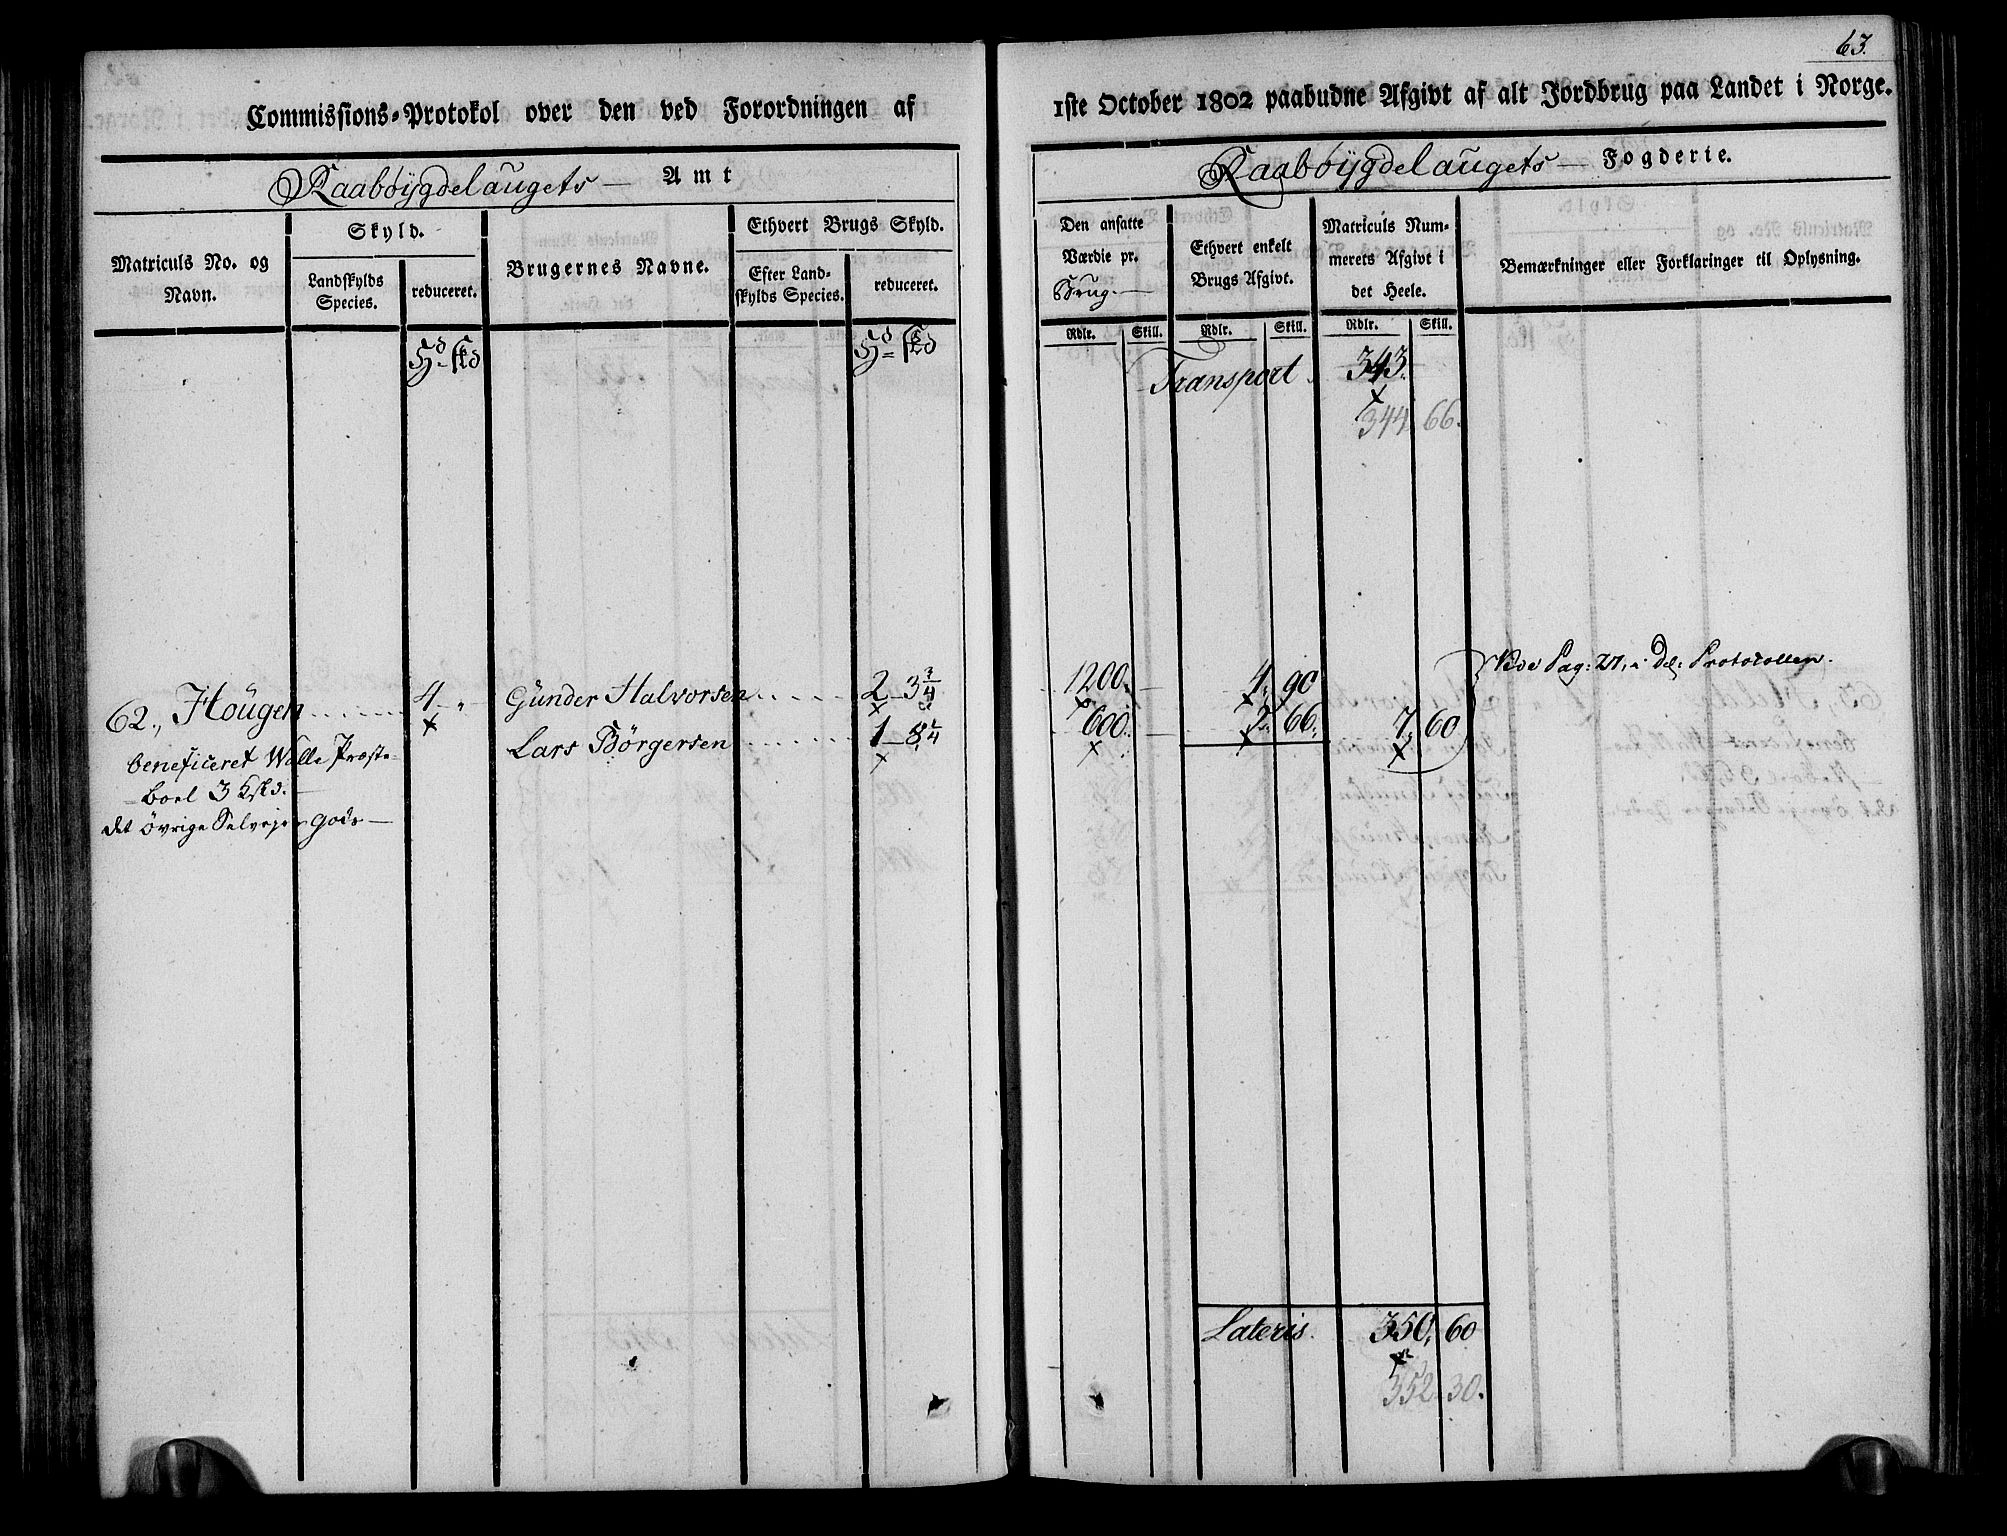 63.
Commissions-Protokol over den ved Forordningen af 1ste October 1802 paabudne Afgivt af alt Jordbrug paa Landet i Norge.
Raabøygdelaugets — Amt
Raabøygdelaugets — Fogderie.
Matriculs No. og Navn.
Skyld.
Landskylds Species.
reduceret.
Brugernes Navne.
Ethvert Brugs Skyld.
Efter Landskylds Species.
reduceret.
Den ansatte Værdie pr. Brug.
Ethvert enkelt Brugs Afgivt.
Matriculs Nummerets Afgivt i det Heele.
Bemærkninger eller Forklaringer til Oplysning.
Rdlr. Skill. Rdlr. Skill. Rdlr. Skill.
Transport. 343.
344 66.
62., Höugen 4 „ Gunder Halvorsen 2 - 3 3/4 1200. 4. 90
Lars Börgersen 1 - 8 1/4 600. 2. 66. 7. 60
beneficeret Walle Præste-
boel 3
det övrige Selveyer gods —
Vide Pag: 27, i Del: Protocollen.
Lateris. 350, 60
352 30.